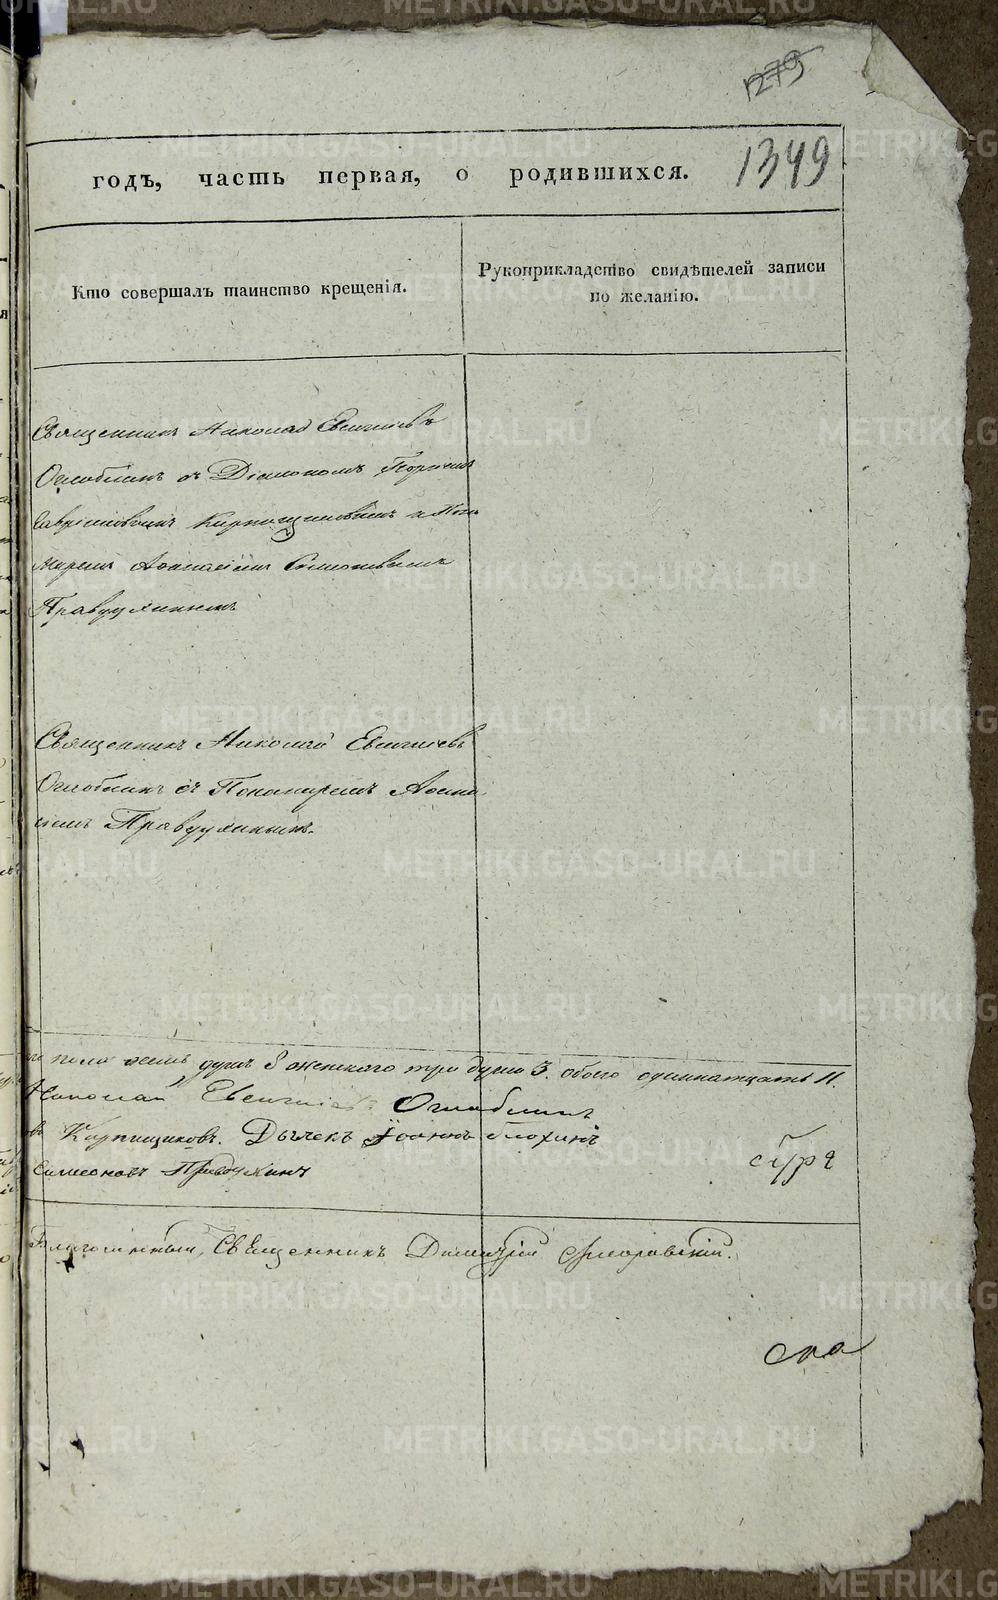 1279
1349
годъ, часть первая, о родившихся.
Кто совершалъ таинство крещенія.
Рукоприкладство свидѣтелей записи
по желанію.
Священникъ Николай Евгеніевъ
Оглоблинъ съ Діакономъ Георгіемъ
Карпищиковымъ и Поно
маремъ Аѳанасіемъ Симеоновымъ
Правдухинымъ
Священникъ Николай Евгеніевъ
Оглоблинъ съ Пономаремъ Аѳана
сіемъ Правдухинымъ.
пола осмь душъ 8 женскаго три души 3. обоего одиннатцать 11.
Николай Евгеніевъ Оглоблинъ
въ Карпищиковъ. Дьячекъ Іоаннъ
Симеоновъ Правдухинъ
Благочинный, Священникъ Димитрій
METRIKI.GASO-URAL.RU